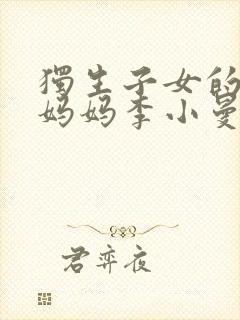 獨生子女的
妈妈李小曼
君弈夜